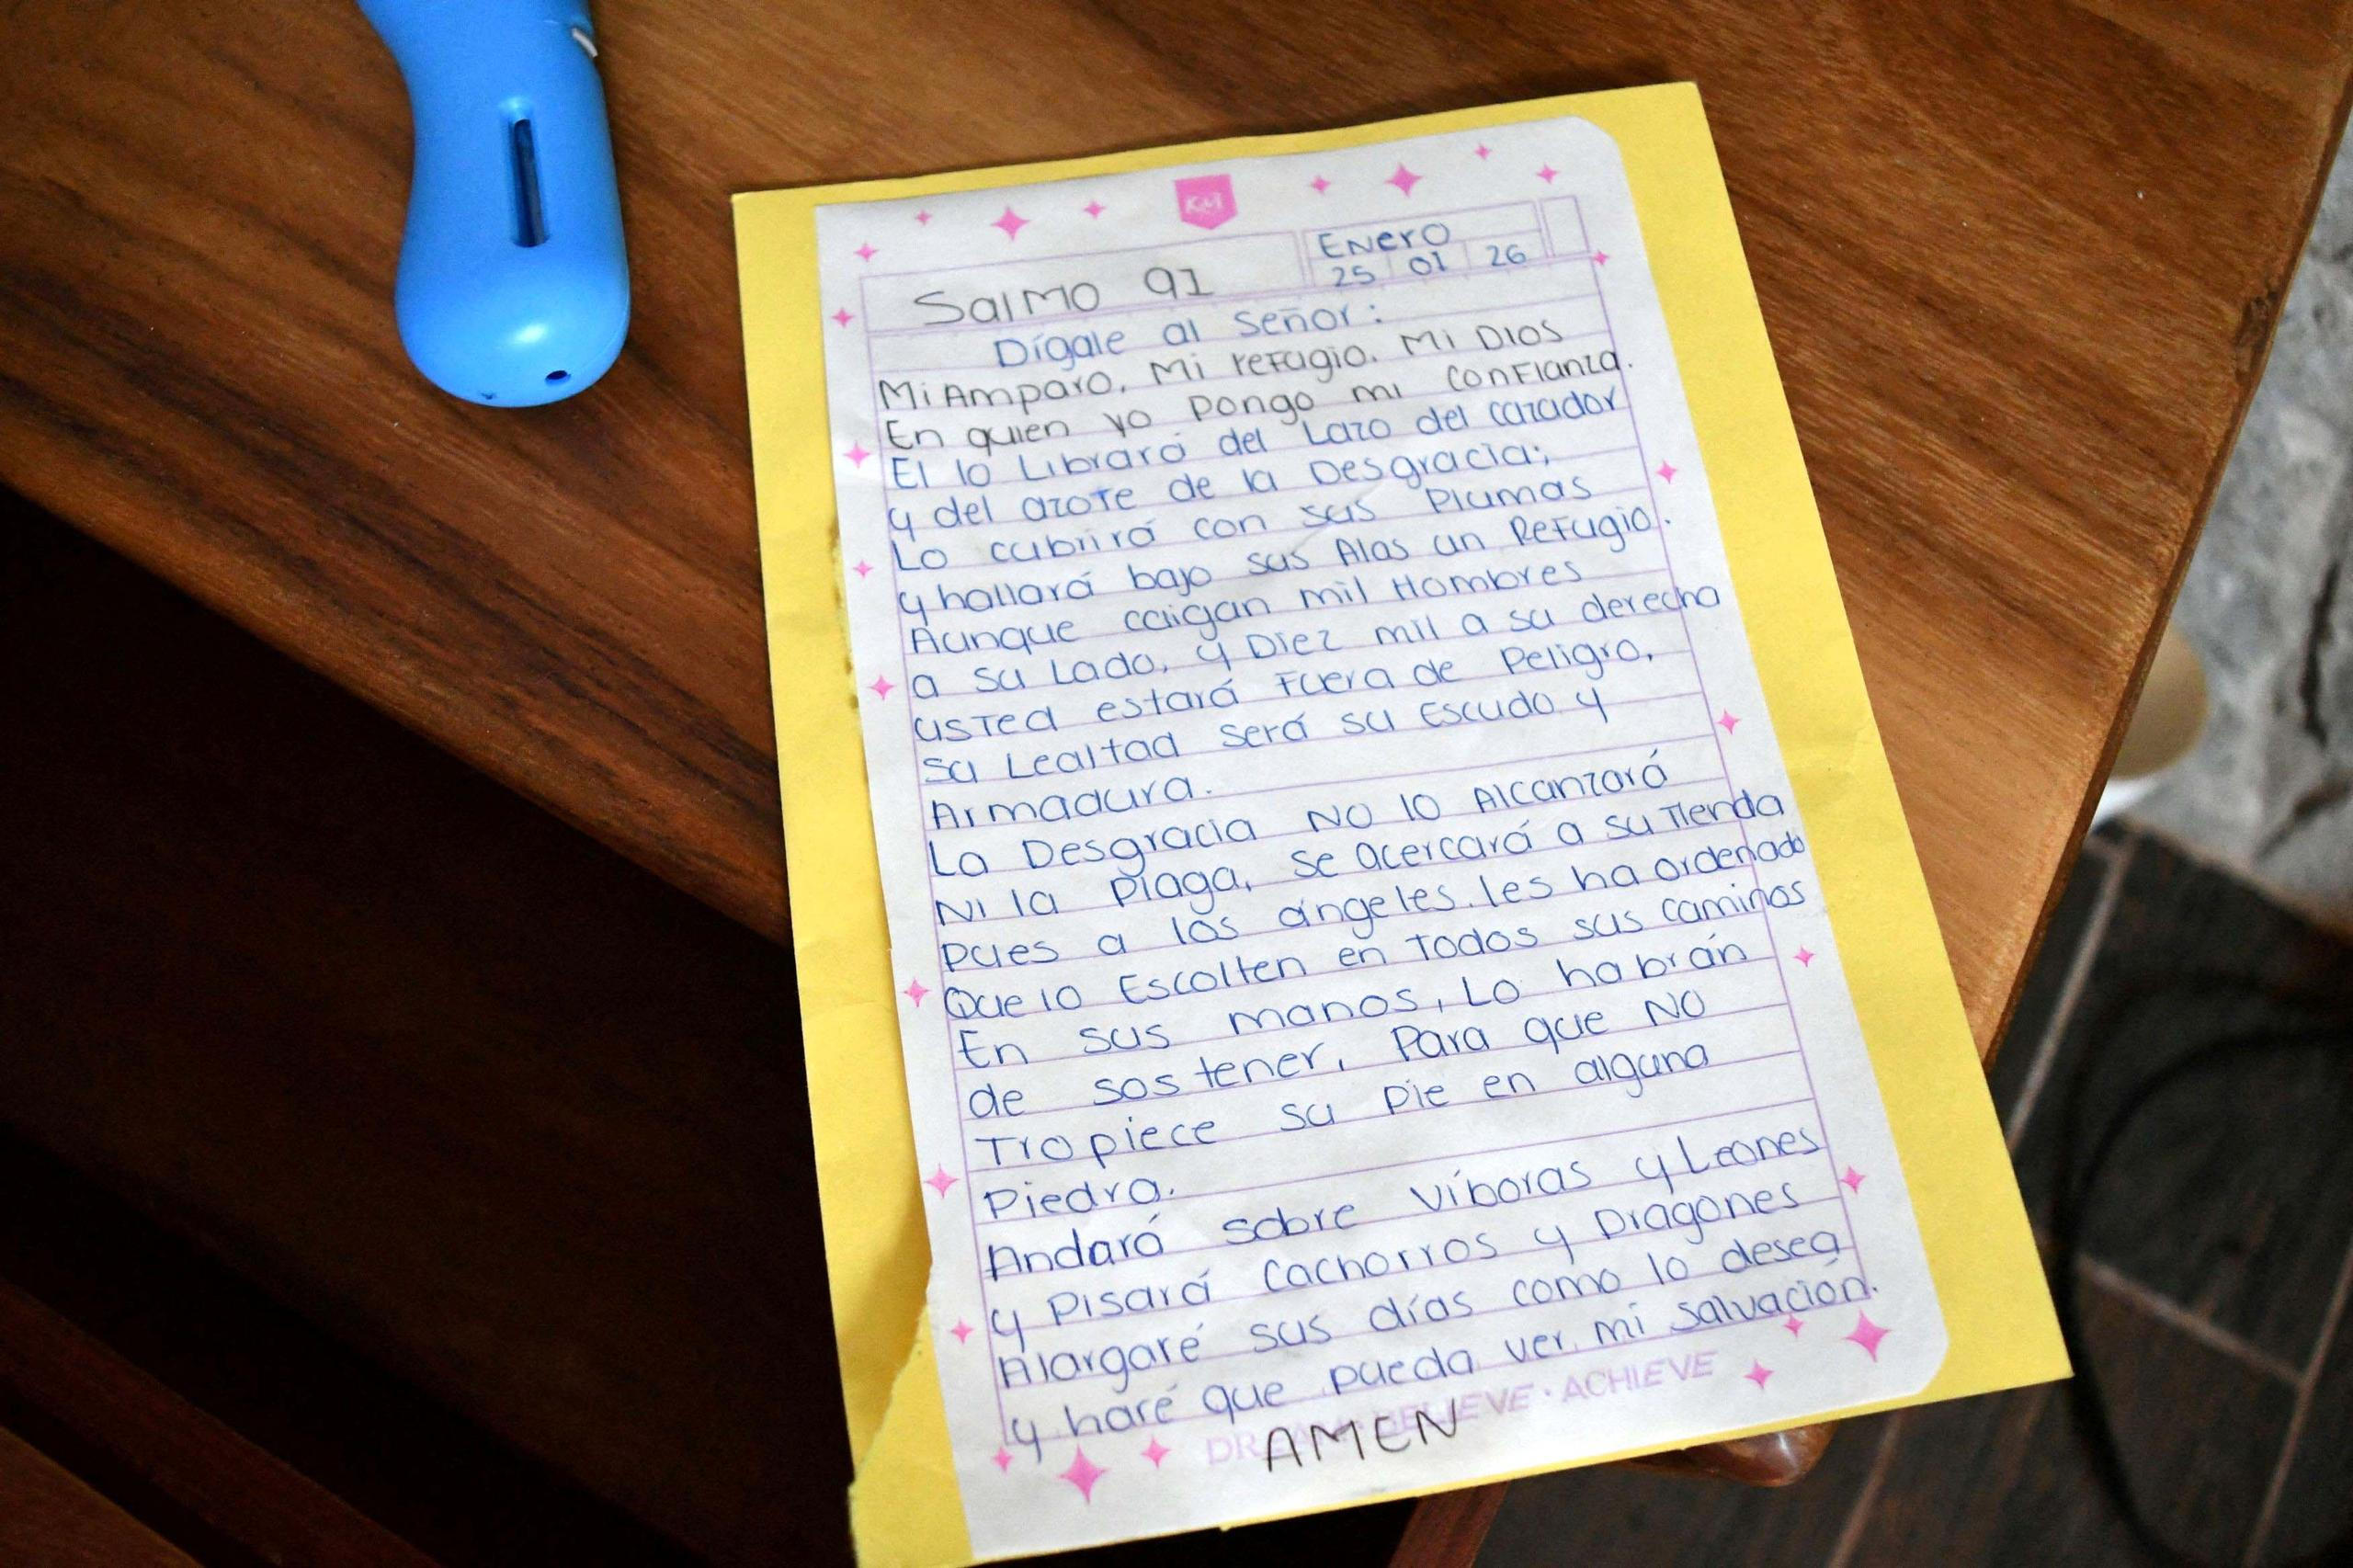 KM
Enero
25 01 26
Salmo 91
Dígale al Señor:
Mi Amparo, Mi refugio. Mi Dios
En quien yo Pongo mi Confianza.
El lo Librará del Lazo del cazador
y del azote de la Desgracia;
Lo cubrirá con sus Plumas
y hallará bajo sus Alas un Refugio.
Aunque caigan mil Hombres
a su Lado, y Diez mil a su derecha
usted estará Fuera de Peligro,
su Lealtad será su Escudo y
Armadura.
La Desgracia NO lo Alcanzará
Ni la Plaga, se acercará a su Tienda
Pues a los ángeles, les ha ordenado
Que lo Escolten en Todos sus Caminos
En sus manos, Lo habrán
de sostener, Para que NO
Tropiece su Pie en alguna
Piedra.
Andará sobre víboras y Leones
y Pisará Cachorros y Dragones
Alargaré sus días como lo desea
y haré que pueda ver mi salvación.
DREAM · BELIEVE · ACHIEVE
AMEN